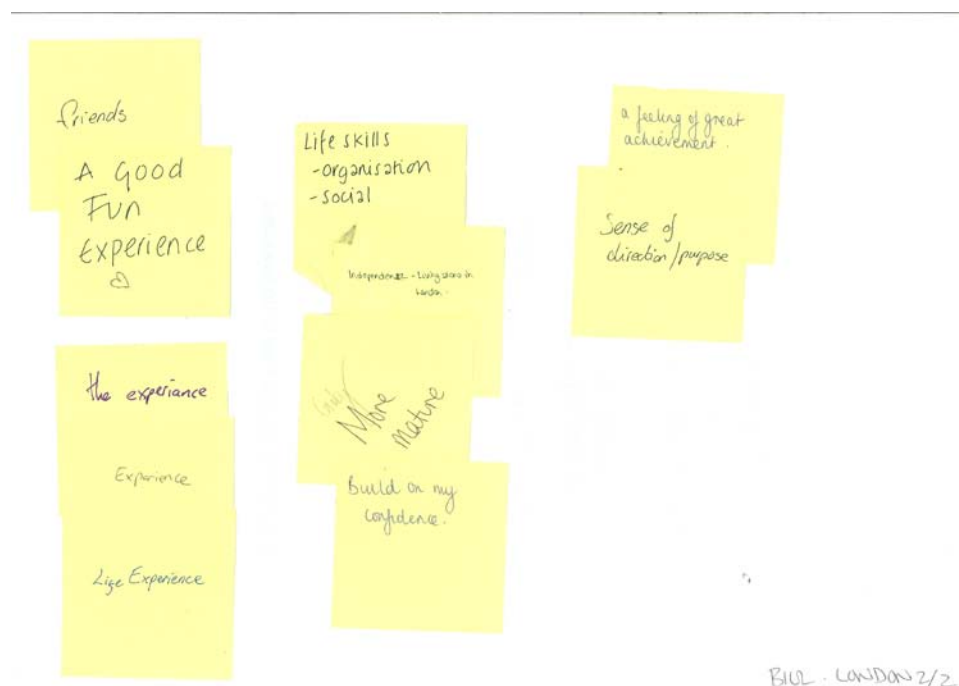 friends
A Good
Fun
Experience
the experiance
Experience
Life Experience
Life skills
-organisation
-social
Independence - Living alone in
London.
More
mature
Build on my
confidence.
a feeling of great
achievement.
Sense of
direction/purpose
LONDON 2/2